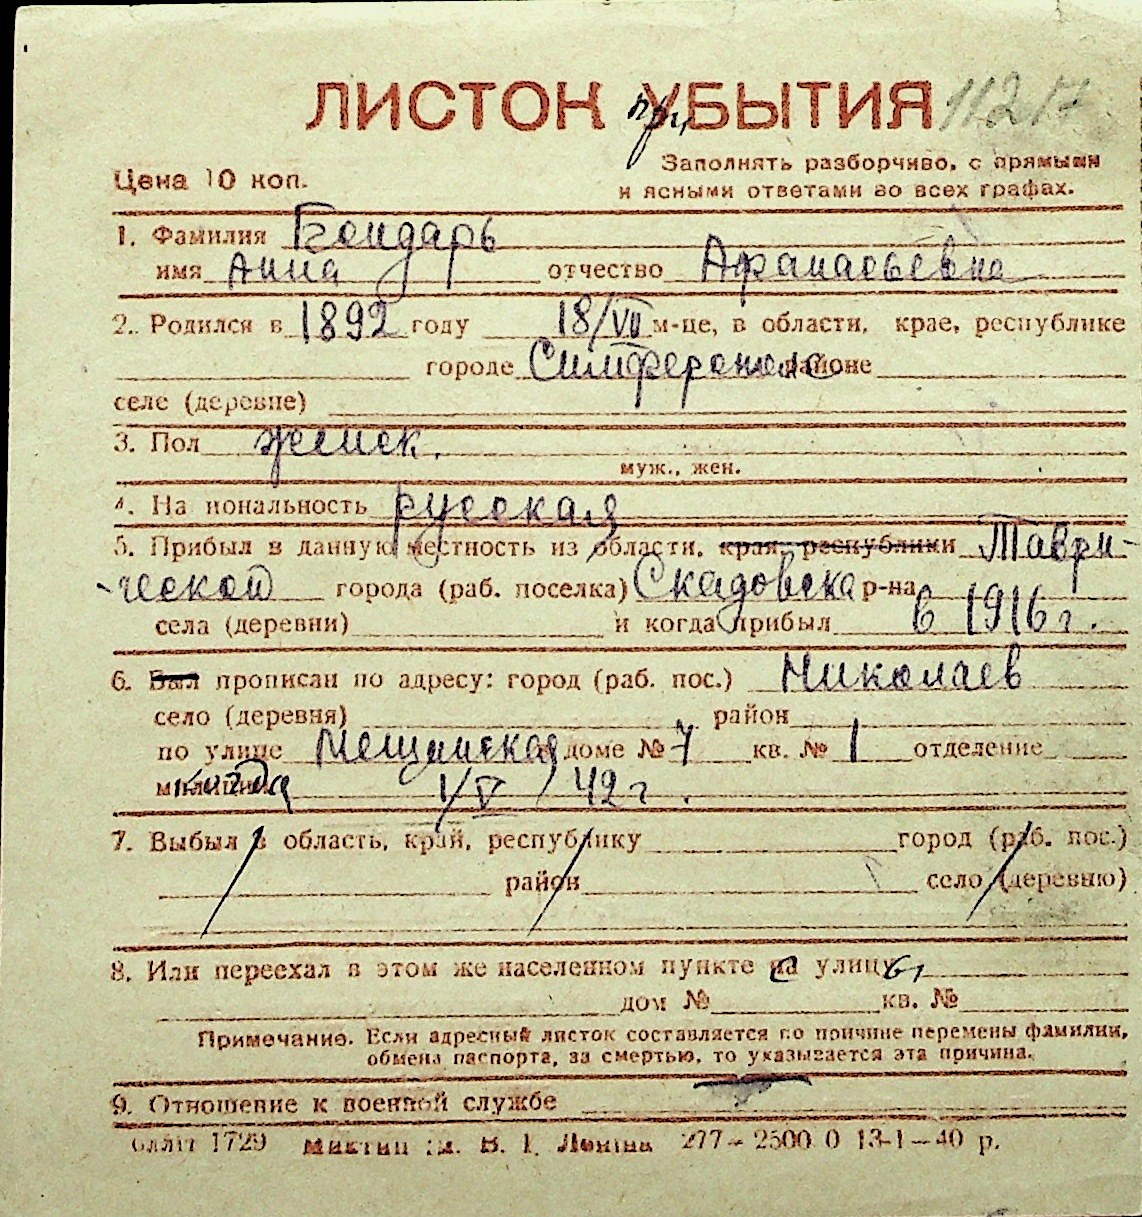 ЛИСТОК УБЫТИЯ при 11217
Цена 10 коп.
Заполнять разборчиво, с прямыми
и ясными ответами во всех графах.
1. Фамилия Бондарь
имя Анна отчество Афанасьевна
2. Родился в 1892 году 18/VII м-це, в области, крае, республике
городе Симферополе районе
селе (деревне)
3. Пол женск.
муж., жен.
4. На иональность русская
5. Прибыл в данную местность из области, края, республики Таври-
-ческой города (раб. поселка) Скадовска р-на
села (деревни) и когда прибыл в 1916 г.
6. Был прописан по адресу: город (раб. пос.) Николаев
село (деревня) район
по улице Мещанская доме № 7 кв. № 1 отделение
милиции когда 1/V 42 г.
7. Выбыл в область, край, республику город (раб. пос.)
район село (деревню)
8. Или переехал в этом же населенном пункте на улицу
дом № кв. №
Примечание. Если адресный листок составляется по причине перемены фамилии,
обмена паспорта, за смертью, то указывается эта причина.
9. Отношение к военной службе
1729 В. І. Леніна 277–2500 0 13-1–40 р.